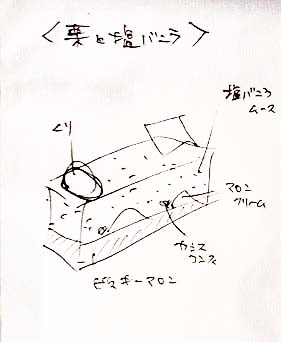 〈栗と塩バニラ〉
塩バニラ
ムース
くり
マロン
クリーム
カシス
コンフィ
ビスキーマロン